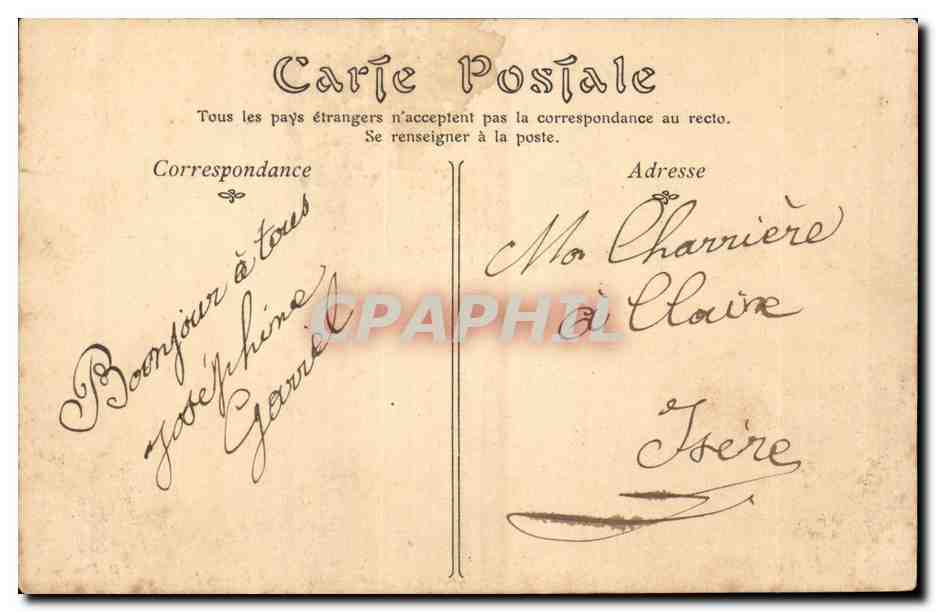 Carte Postale
Tous les pays étrangers n'acceptent pas la correspondance au recto.
Se renseigner à la poste.
Correspondance
Bonjour à tous
Joséphine
Garrel
Adresse
Mr Charrière
à Claix
Isère
CPAPHIL